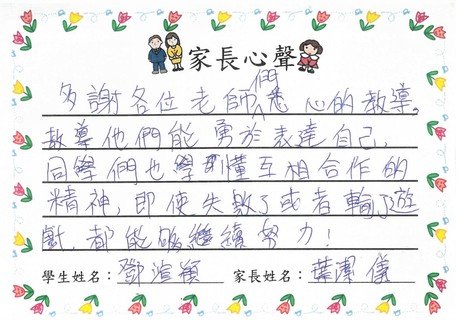 家長心聲
多謝各位老師們悉心的教導,
教導他們能勇於表達自己,
同學們也學到懂互相合作的
精神, 即使失敗了或者輸了遊
戲, 都能夠繼續努力!
學生姓名: 鄧渲穎 家長姓名: 葉潔儀